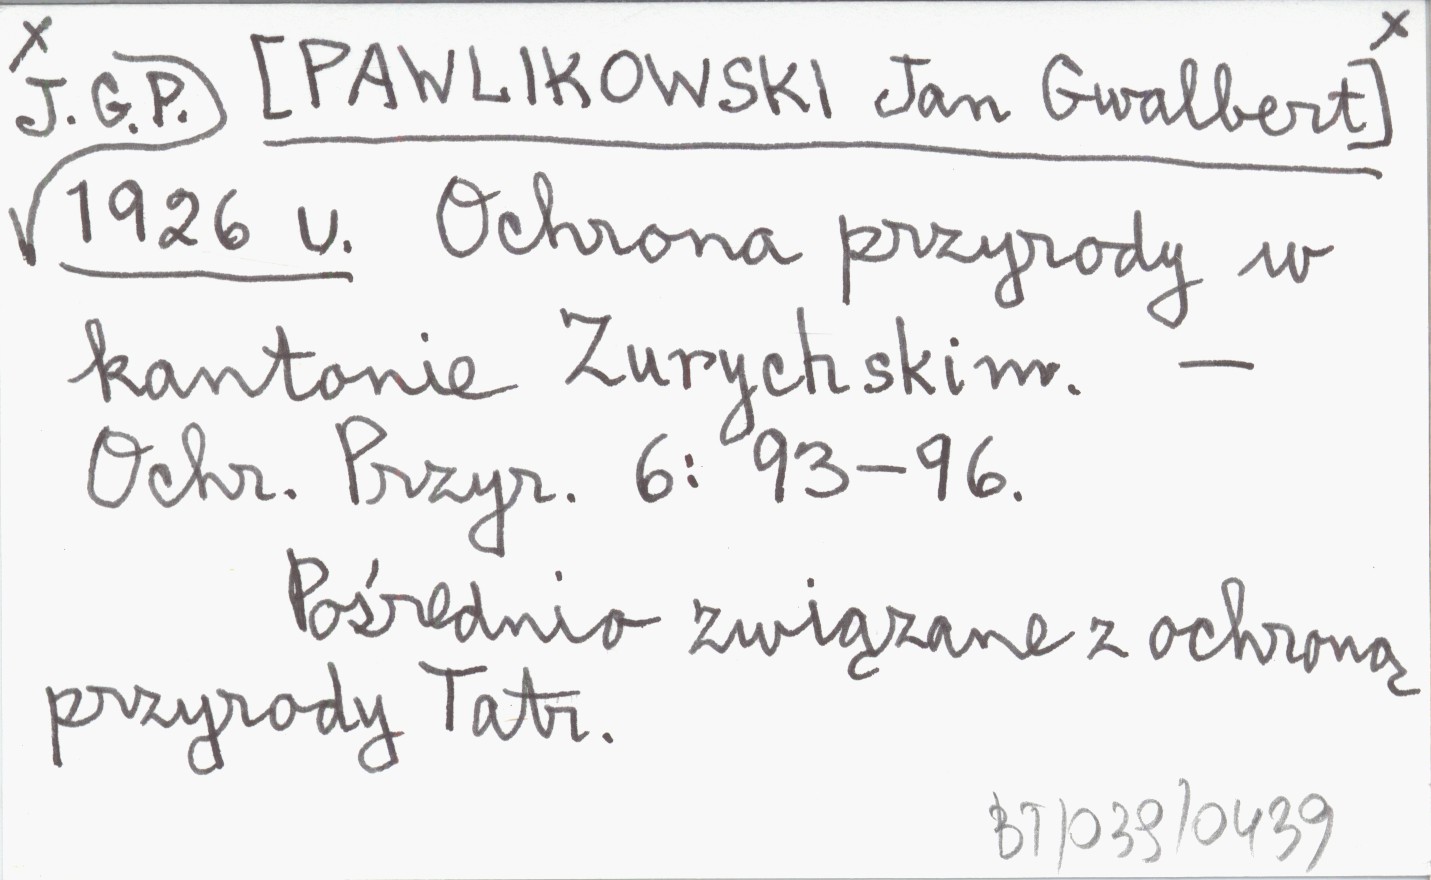 x x
J.G.P. [PAWLIKOWSKI Jan Gwalbert]
1926 u. Ochrona przyrody w
kantonie Zurychskim. —
Ochr. Przyr. 6: 93-96.
Pośrednio związane z ochroną
przyrody Tatr.
BT/039/0439